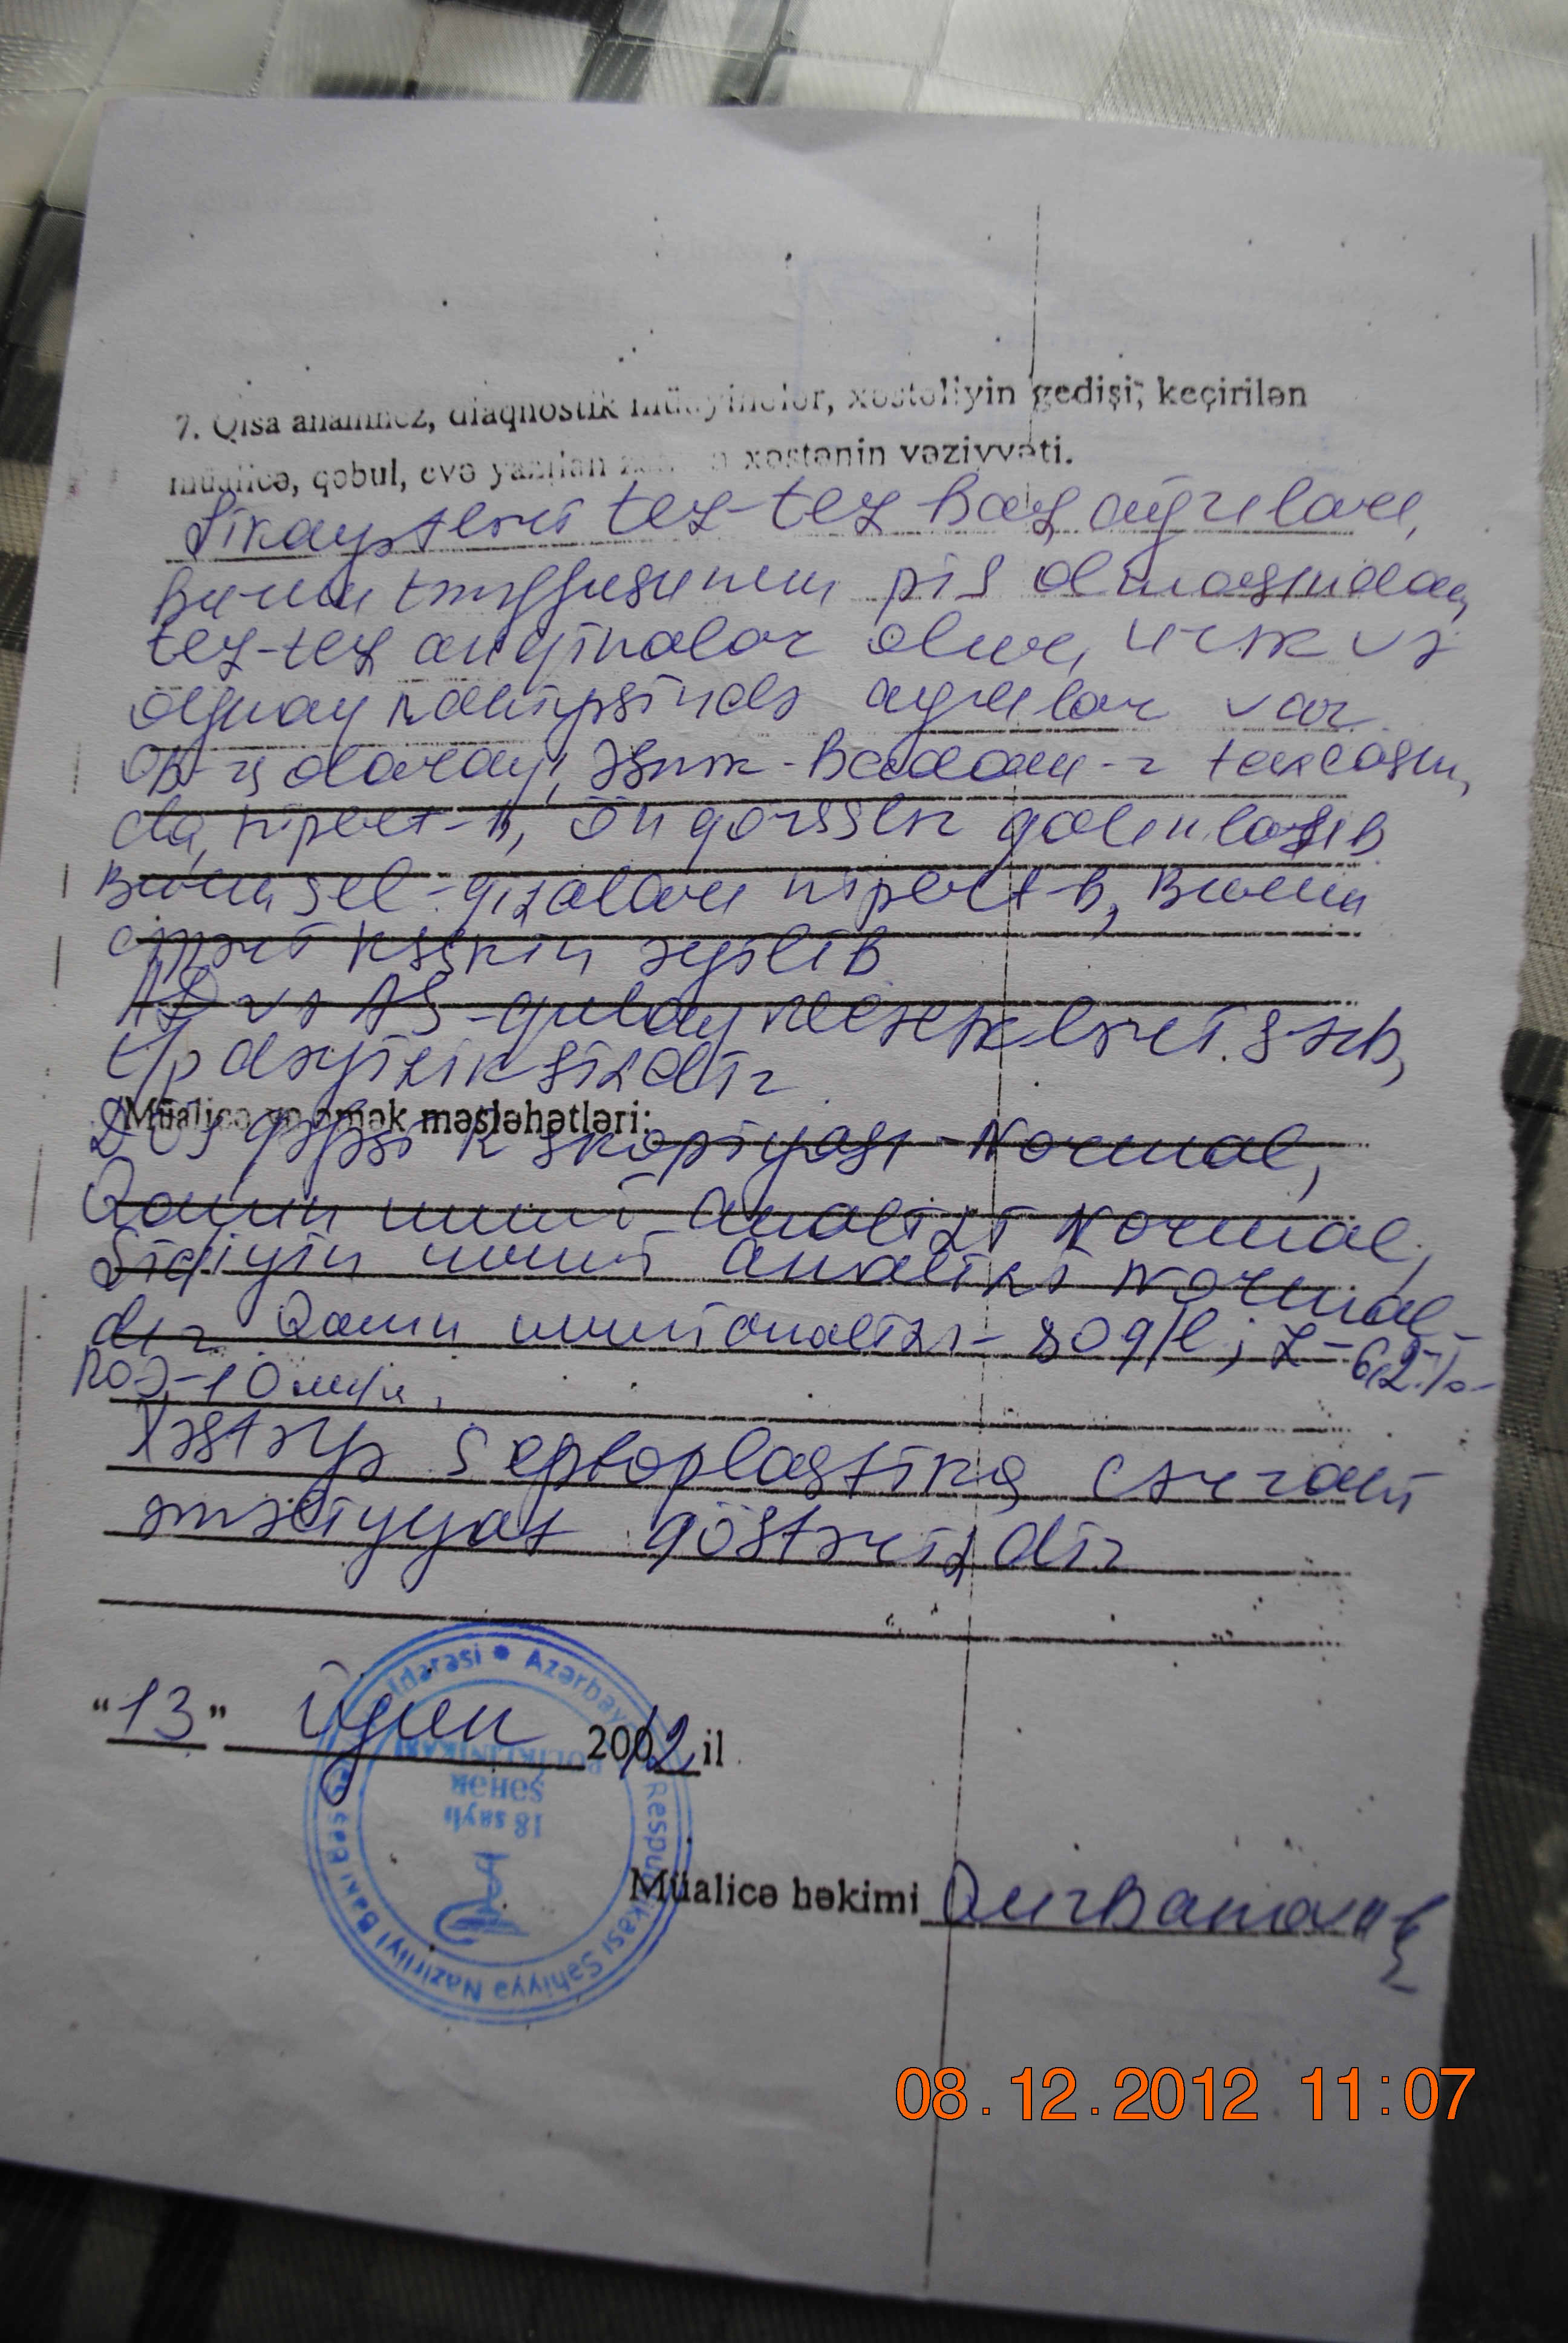 7. Qısa anamnez, diaqnostik müayinələr, xəstəliyin gedişi, keçirilən
müalicə, qəbul, evə yazılan zaman xəstənin vəziyyəti.
Şikayətləri tez-tez baş ağrıları,
Burun tənəffüsünün pis olmasından,
tez-tez anginalar olur, ürək və
oynaq nahiyəsində ağrılar var.
OB-ı, Əsnək-Badam-r
da, hipert-b, ön qövslər qalınlaşıb
Burun sel-qişaları hipert-b, Burun
çəpəri kəskin əyilib
AD və AS-qulaq
t/p dəyişiksizdir.
Müalicə və əmək məsləhətləri:
DQ qəfəsi R skopiyası - Normal,
Qanın ümumi analizi Normal,
Sidiyin ümumi analizi Normal-
dır. Qanın ümumi analizi - 80 g/l; L-6,2
ROƏ-10 mm/s,
Xəstəyə septoplastika cərrahi
əməliyyat göstərişdir
"13" İyun 20012 il
Müalicə həkimi Qurbanova
Azərbaycan Respublikası Səhiyyə Nazirliyi Bakı Baş Səhiyyə İdarəsi
18 saylı
ŞƏHƏR
POLİKLİNİKASI
08.12.2012 11:07